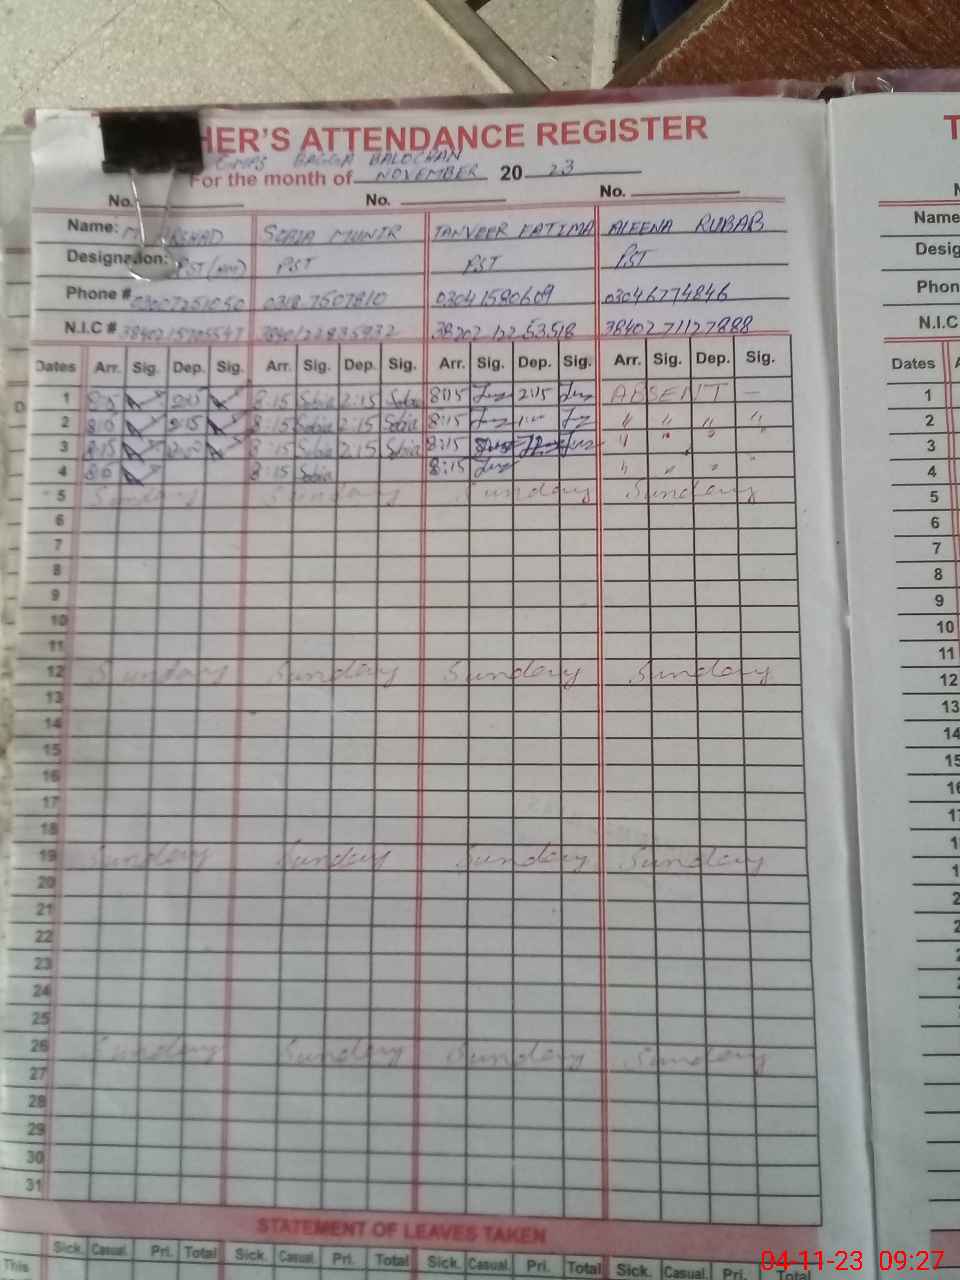 HER'S ATTENDANCE REGISTER
GMPS BAGGA BALOCHAN
For the month of NOVEMBER 20 23
No. No. No.
Name: ARSHAD SOBIA MUNIR TANVEER FATIMA ALEENA RUBAB
Designation: PST PST PST PST
Phone # 03187507810 03041580609 03046774846
N.I.C # 3840271127888
Dates Arr. Sig. Dep. Sig. Arr. Sig. Dep. Sig. Arr. Sig. Dep. Sig. Arr. Sig. Dep. Sig.
1 8:15 Sobia 2:15 Sobia 8:15 2:15 ABSENT —
2 8:15 Sobia 2:15 Sobia 8:15 " " " "
3 8:15 8:15 Sobia 2:15 Sobia 8:15 " " "
4 8:15 Sobia 8:15 " " "
5 Sunday Sunday Sunday Sunday
6
7
8
9
10
11
12 Sunday Sunday Sunday Sunday
13
14
15
16
17
18
19 Sunday Sunday Sunday Sunday
20
21
22
23
24
25
26 Sunday Sunday Sunday Sunday
27
28
29
30
31
STATEMENT OF LEAVES TAKEN
Sick. Casual. Pri. Total Sick. Casual. Pri. Total Sick. Casual. Pri. Total Sick. Casual. Pri. Total
This
T
Name
Desig
Phon
N.I.C
Dates
1
2
3
4
5
6
7
8
9
10
11
12
13
14
04-11-23 09:27